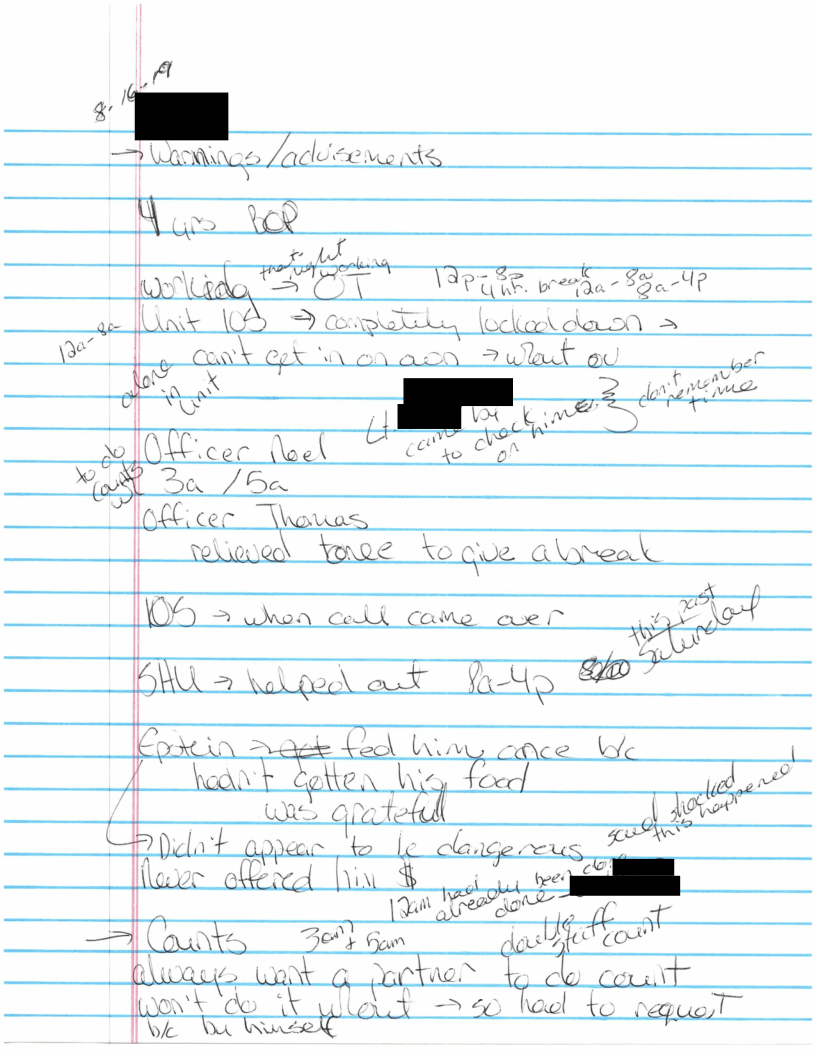 8-16-19
→ Warnings/advisements
4 yrs BOP
working → OT that night working 12p-8p 4 hr. break 12a-8a 8a-4p
12a-8a Unit 10S → completely locked down →
can't get in on own → w/out ov
alone in unit
Lt. came by to check on him don't remember time
Officer Noel
to do counts w/ 3a / 5a
Officer Thomas
relieved to give a break
10S → when call came over
SHU → helped out 8a-4p this past Saturday
Epstein → got fed him once b/c
hadn't gotten his food
was grateful
→ Didn't appear to be dangerous said shocked this happened
Never offered him $
12am had already been done
→ Counts 3am + 5am double staff count
always want a partner to do count
won't do it w/out → so had to request
b/c by himself